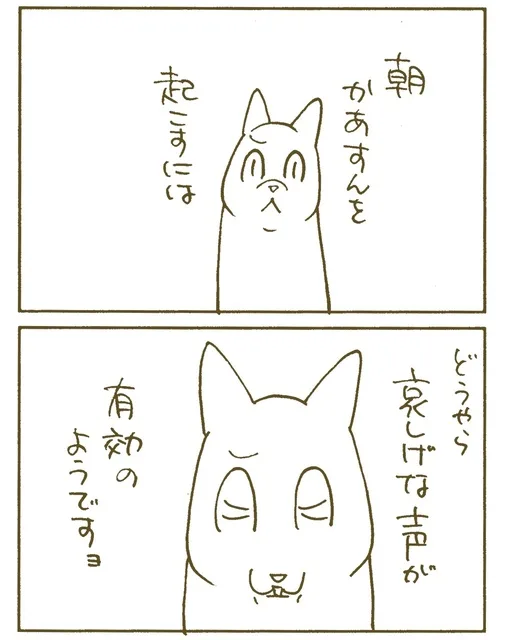 朝
かあすんを
起こすには
どうやら
哀しげな声が
有効の
ようですョ